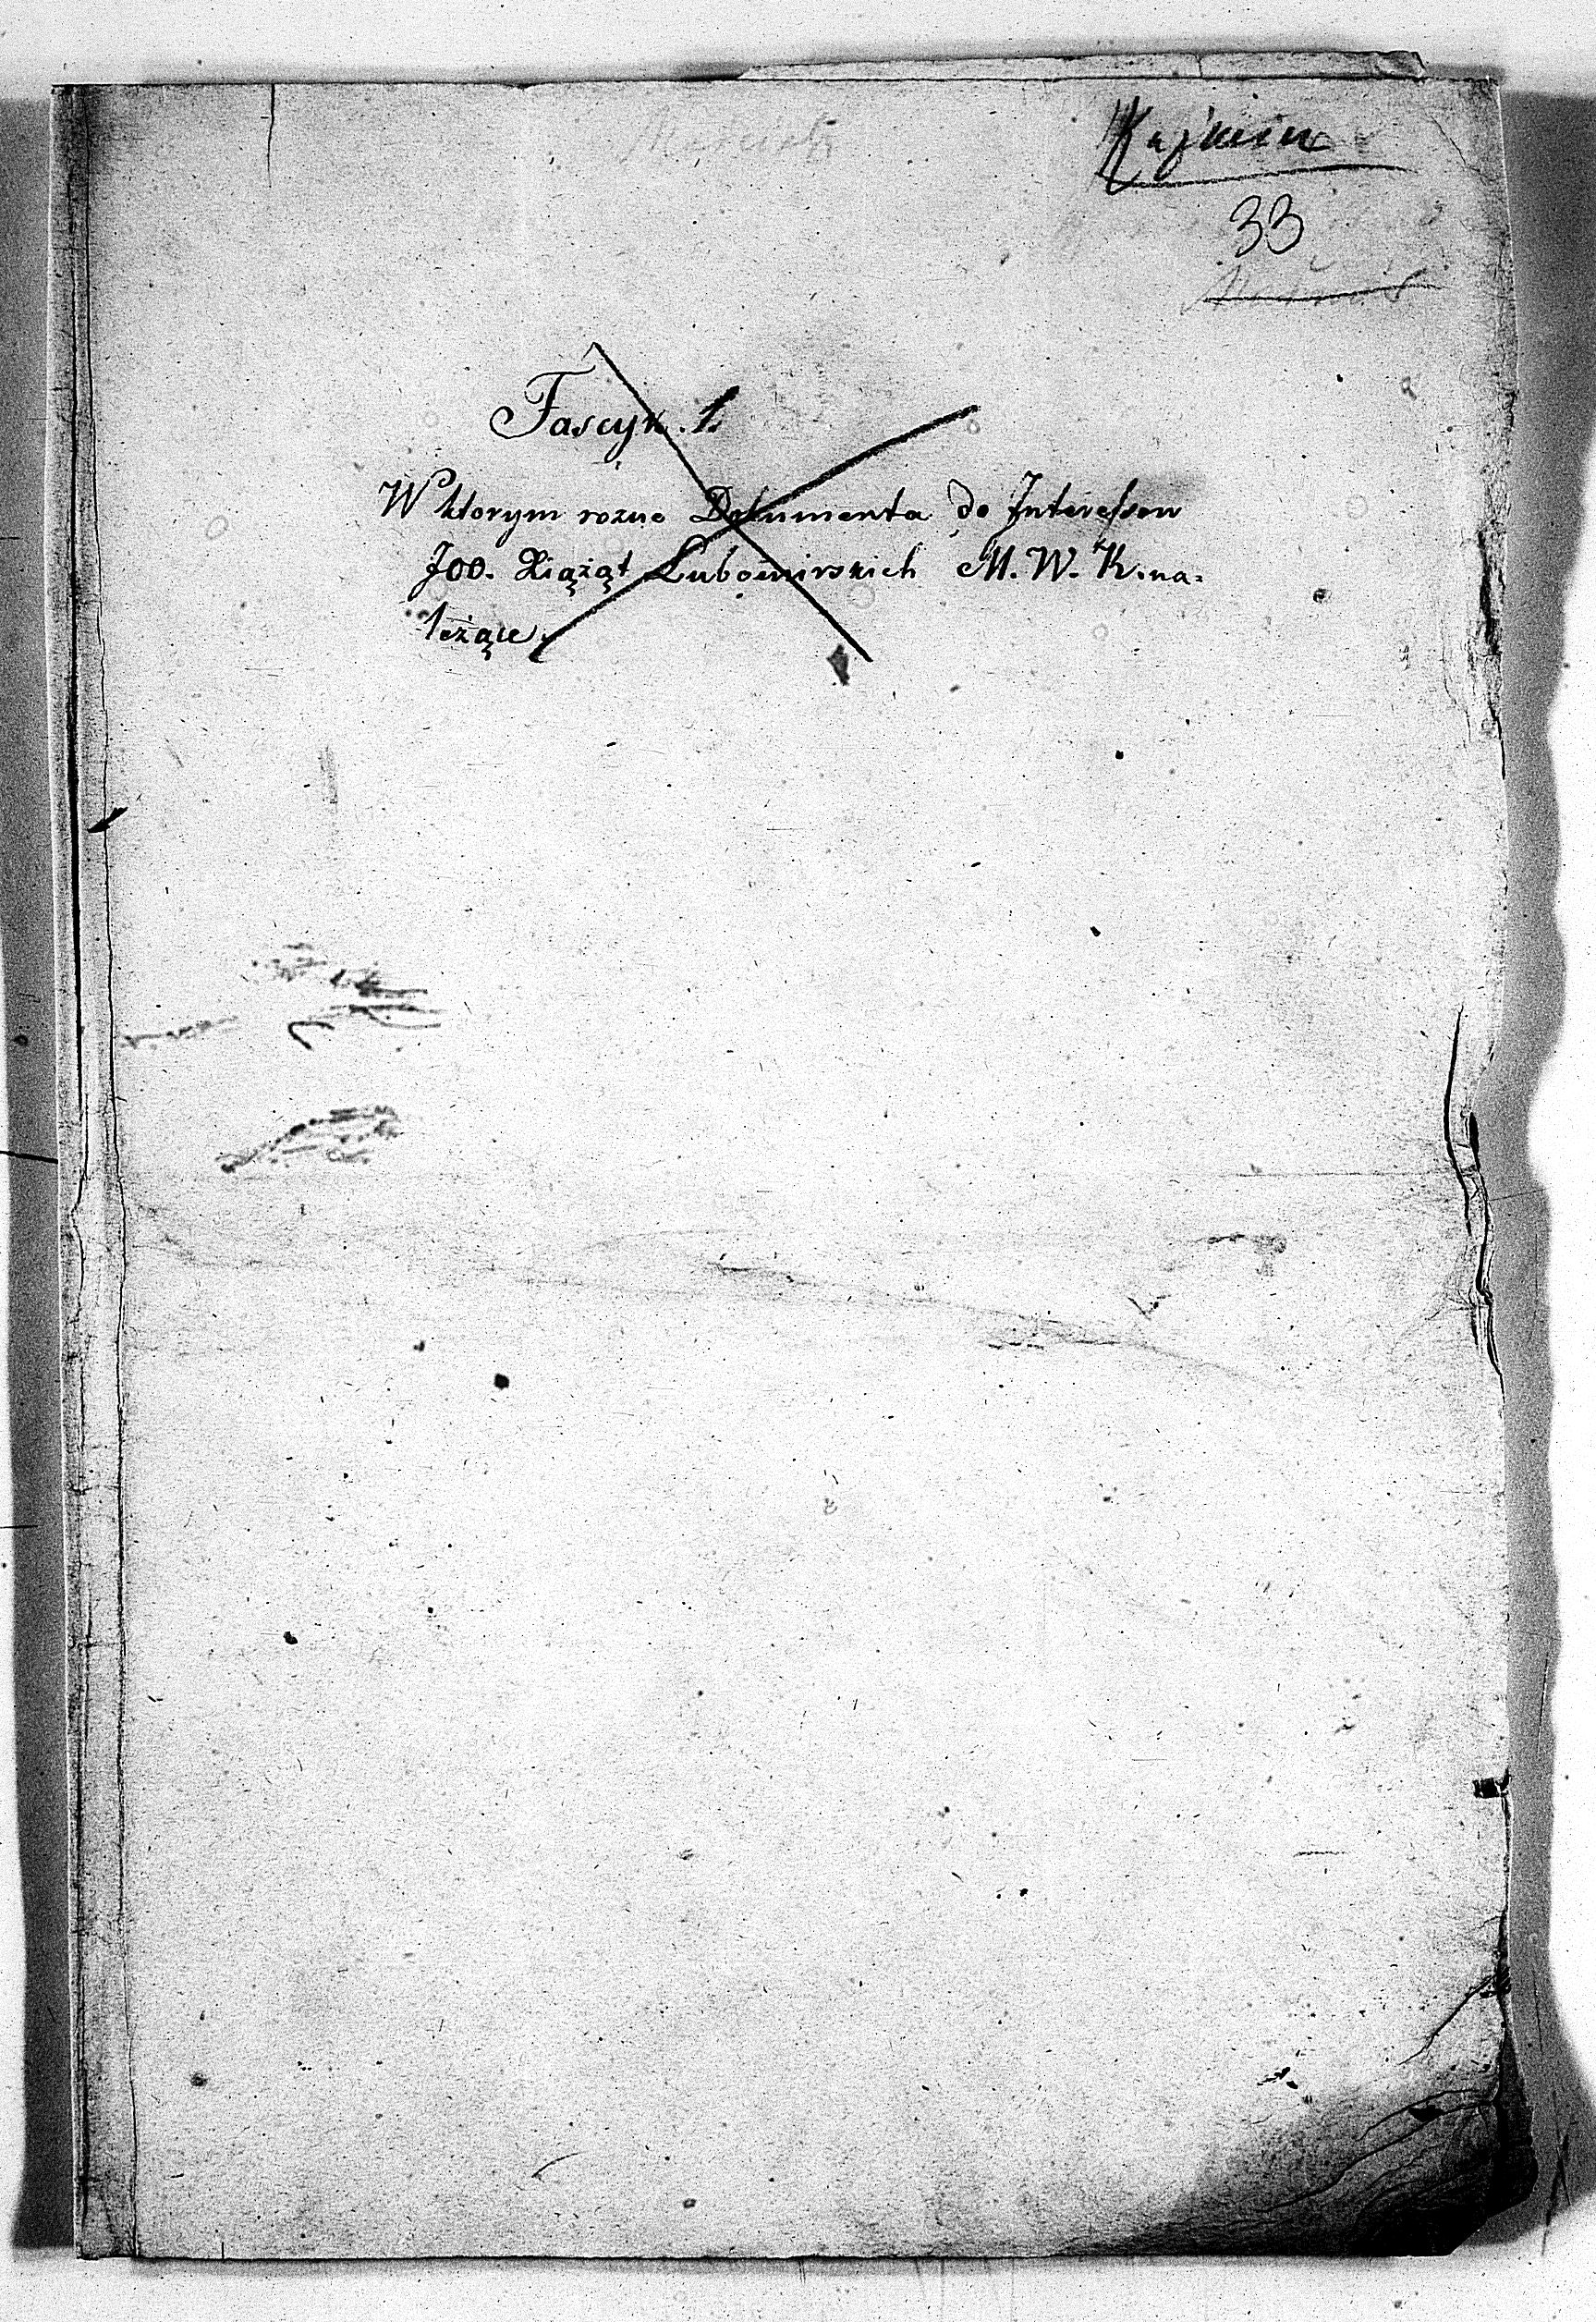 33
Fascyk. 1.
W ktorym rozne Dokumenta do Interessow
JOO. Xiążąt Lubomirskich M. W. K. na=
leżące.